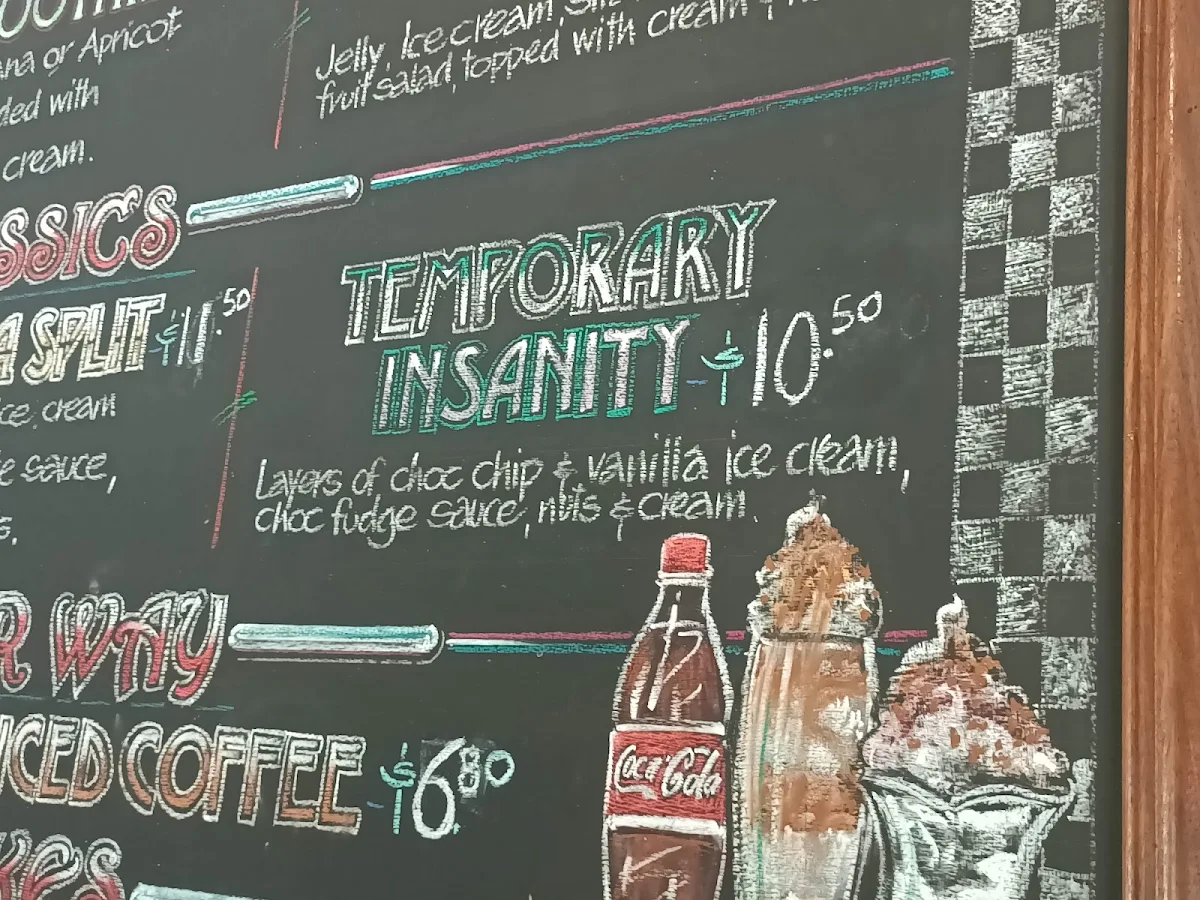 or Apricot
with
cream.
Jelly, Ice cream,
fruit salad, topped with cream &
SPLIT $11.50
cream
sauce,
TEMPORARY
INSANITY $10.50
Layers of choc chip & vanilla ice cream,
choc fudge sauce, nuts & cream.
WAY
ICED COFFEE $6.80
Coca-Cola